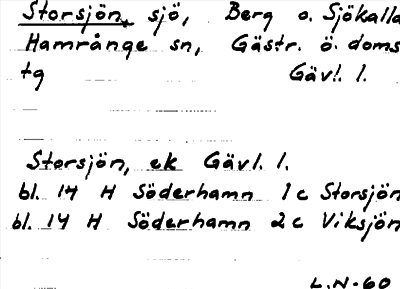 Storsjön, sjö, Berg o. Sjökalla
Hamrånge sn, Gästr. ö. doms
tg Gävl. l.
Storsjön, ek Gävl. l.
bl. 14 H Söderhamn 1c Storsjön
bl. 14 H Söderhamn 2c Viksjön
L.N-60